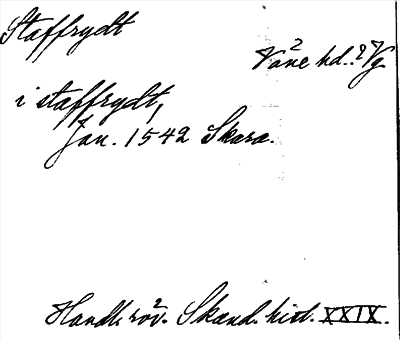 Staffrydt
Väne hd.? Vg.
i staffrydt,
Jan. 1542 Skara.
Handl. röv. Skand. hist. XXIX.